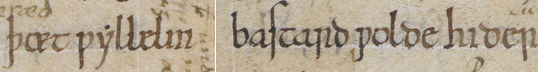 þæt ƿyllelm baſtard ƿolde hider